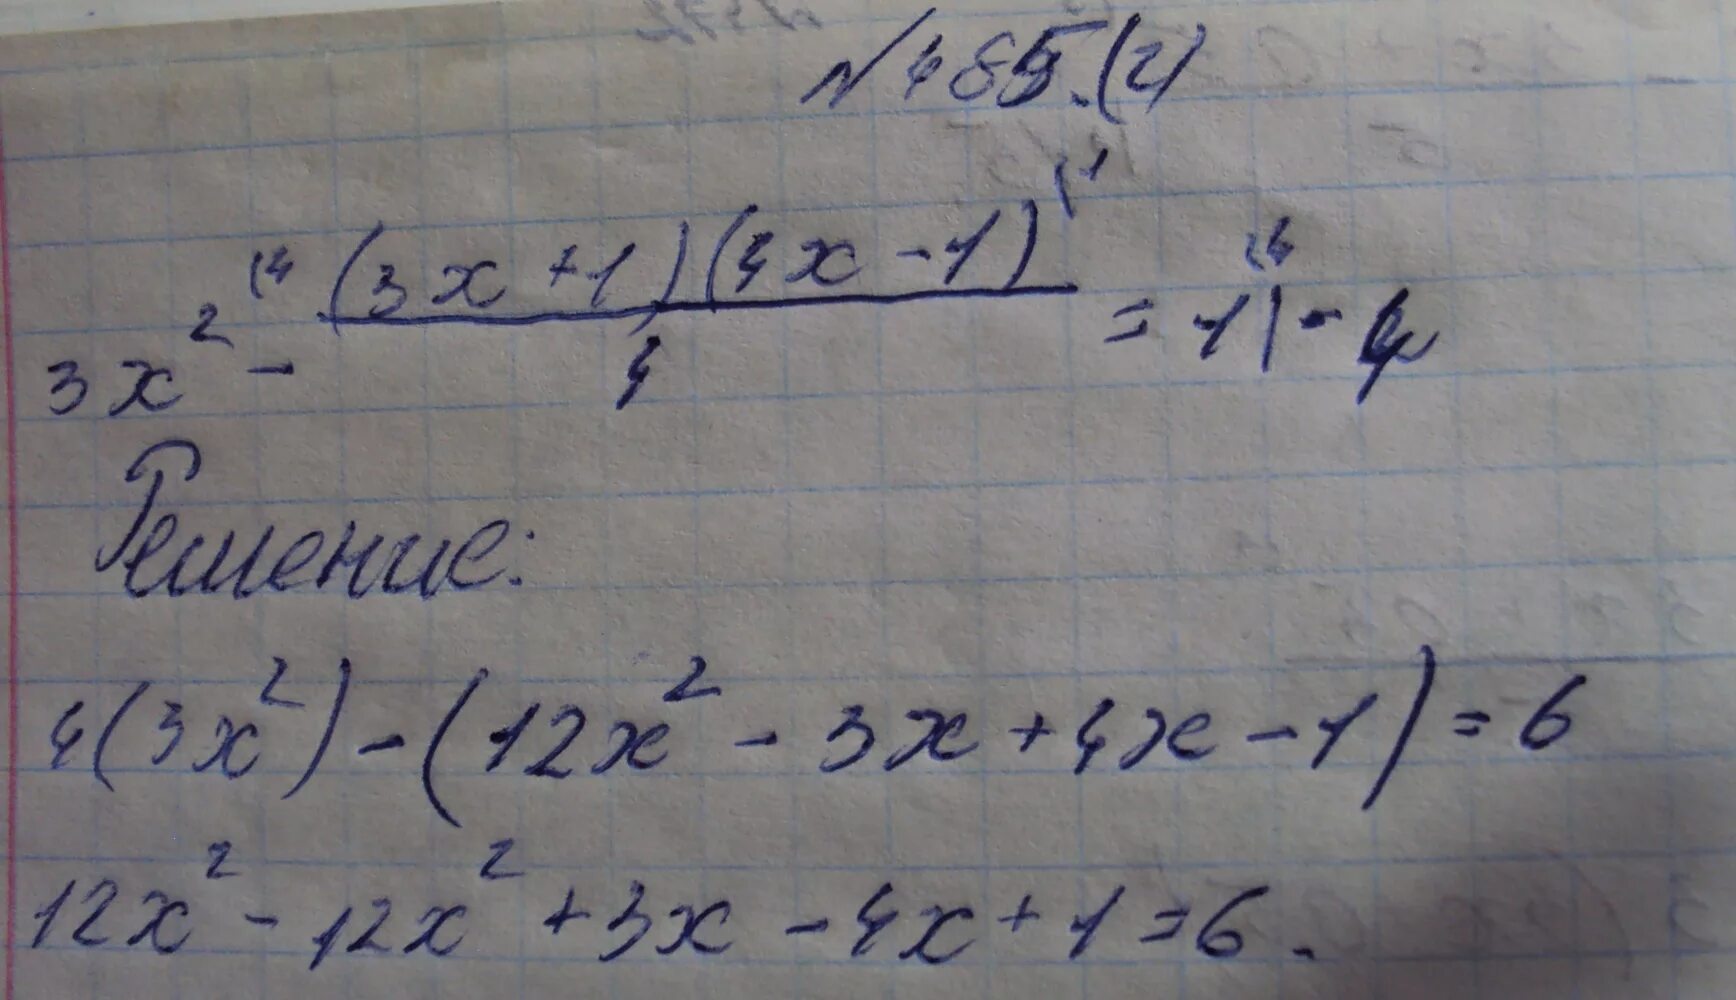 № 485.(2)
3x² (4 - (3x+1)(4x-1) (1 / 4 = 1 1 (4
Решение:
4(3x²)-(12x²-3x+4x-1)=6
12x²-12x²+3x-4x+1=6.